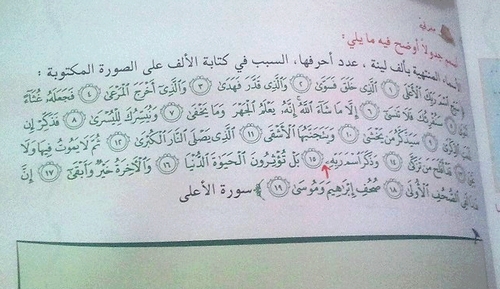 معرفية
أصمم جدولاً أوضح فيه ما يلي:
الأسماء المنتهية بألف لينة ، عدد أحرفها، السبب في كتابة الألف على الصورة المكتوبة :
سَبِّحِ ٱسْمَ رَبِّكَ ٱلْأَعْلَى ١ ٱلَّذِى خَلَقَ فَسَوَّىٰ ٢ وَٱلَّذِى قَدَّرَ فَهَدَىٰ ٣ وَٱلَّذِىٓ أَخْرَجَ ٱلْمَرْعَىٰ ٤ فَجَعَلَهُۥ غُثَآءً
أَحْوَىٰ ٥ سَنُقْرِئُكَ فَلَا تَنسَىٰٓ ٦ إِلَّا مَا شَآءَ ٱللَّهُ إِنَّهُۥ يَعْلَمُ ٱلْجَهْرَ وَمَا يَخْفَىٰ ٧ وَنُيَسِّرُكَ لِلْيُسْرَىٰ ٨ فَذَكِّرْ إِن
نَّفَعَتِ ٱلذِّكْرَىٰ ٩ سَيَذَّكَّرُ مَن يَخْشَىٰ ١٠ وَيَتَجَنَّبُهَا ٱلْأَشْقَى ١١ ٱلَّذِى يَصْلَى ٱلنَّارَ ٱلْكُبْرَىٰ ١٢ ثُمَّ لَا يَمُوتُ فِيهَا وَلَا
يَحْيَىٰ ١٣ قَدْ أَفْلَحَ مَن تَزَكَّىٰ ١٤ وَذَكَرَ ٱسْمَ رَبِّهِۦ ١٥ بَلْ تُؤْثِرُونَ ٱلْحَيَوٰةَ ٱلدُّنْيَا ١٦ وَٱلْآخِرَةُ خَيْرٌ وَأَبْقَىٰٓ ١٧ إِنَّ
هَٰذَا لَفِى ٱلصُّحُفِ ٱلْأُولَىٰ ١٨ صُحُفِ إِبْرَٰهِيمَ وَمُوسَىٰ ١٩ ﴾ سورة الأعلى